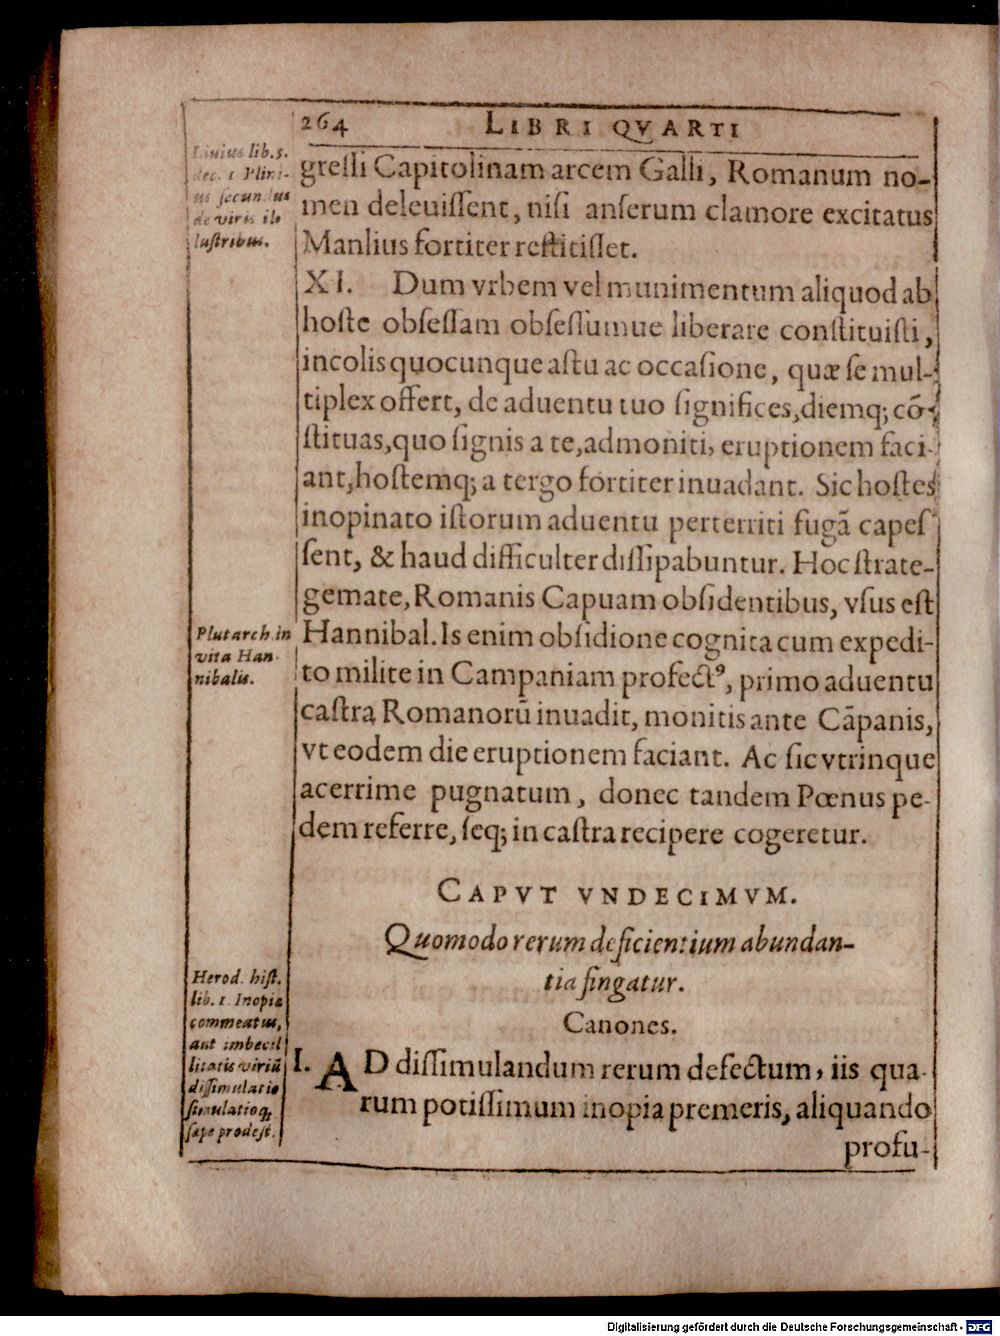 264 LIBRI QVARTI
Liuius lib. 5.
dec. 1 Plini-
us secundus
de viris il-
lustribus.
gressi Capitolinam arcem Galli, Romanum no-
men deleuissent, nisi anserum clamore excitatus
Manlius fortiter restitisset.
XI. Dum vrbem vel munimentum aliquod ab
hoste obsessam obsessumue liberare constituisti,
incolis quocunque astu ac occasione, quæ se mul-
tiplex offert, de aduentu tuo significes, diemq; cō-
stituas, quo signis a te, admoniti, eruptionem faci-
ant, hostemq; a tergo fortiter inuadant. Sic hostes
inopinato istorum aduentu perterriti fugā capes-
sent, & haud difficulter dissipabuntur. Hoc strate-
gemate, Romanis Capuam obsidentibus, vsus est
Plutarch. in
vita Han-
nibalis.
Hannibal. Is enim obsidione cognita cum expedi-
to milite in Campaniam profectꝰ, primo aduentu
castra Romanorū inuadit, monitis ante Cāpanis,
vt eodem die eruptionem faciant. Ac sic vtrinque
acerrime pugnatum, donec tandem Pœnus pe-
dem referre, seq; in castra recipere cogeretur.
CAPVT VNDECIMVM.
Quomodo rerum deficientium abundan-
tia fingatur.
Canones.
Herod. hist.
lib. 1. Inopia
commeatus,
aut imbecil
litatis viriū
dissimulatio
simulatioq;
sæpe prodest.
I. AD dissimulandum rerum defectum, iis qua-
rum potissimum inopia premeris, aliquando
profu-
Digitalisierung gefördert durch die Deutsche Forschungsgemeinschaft - DFG